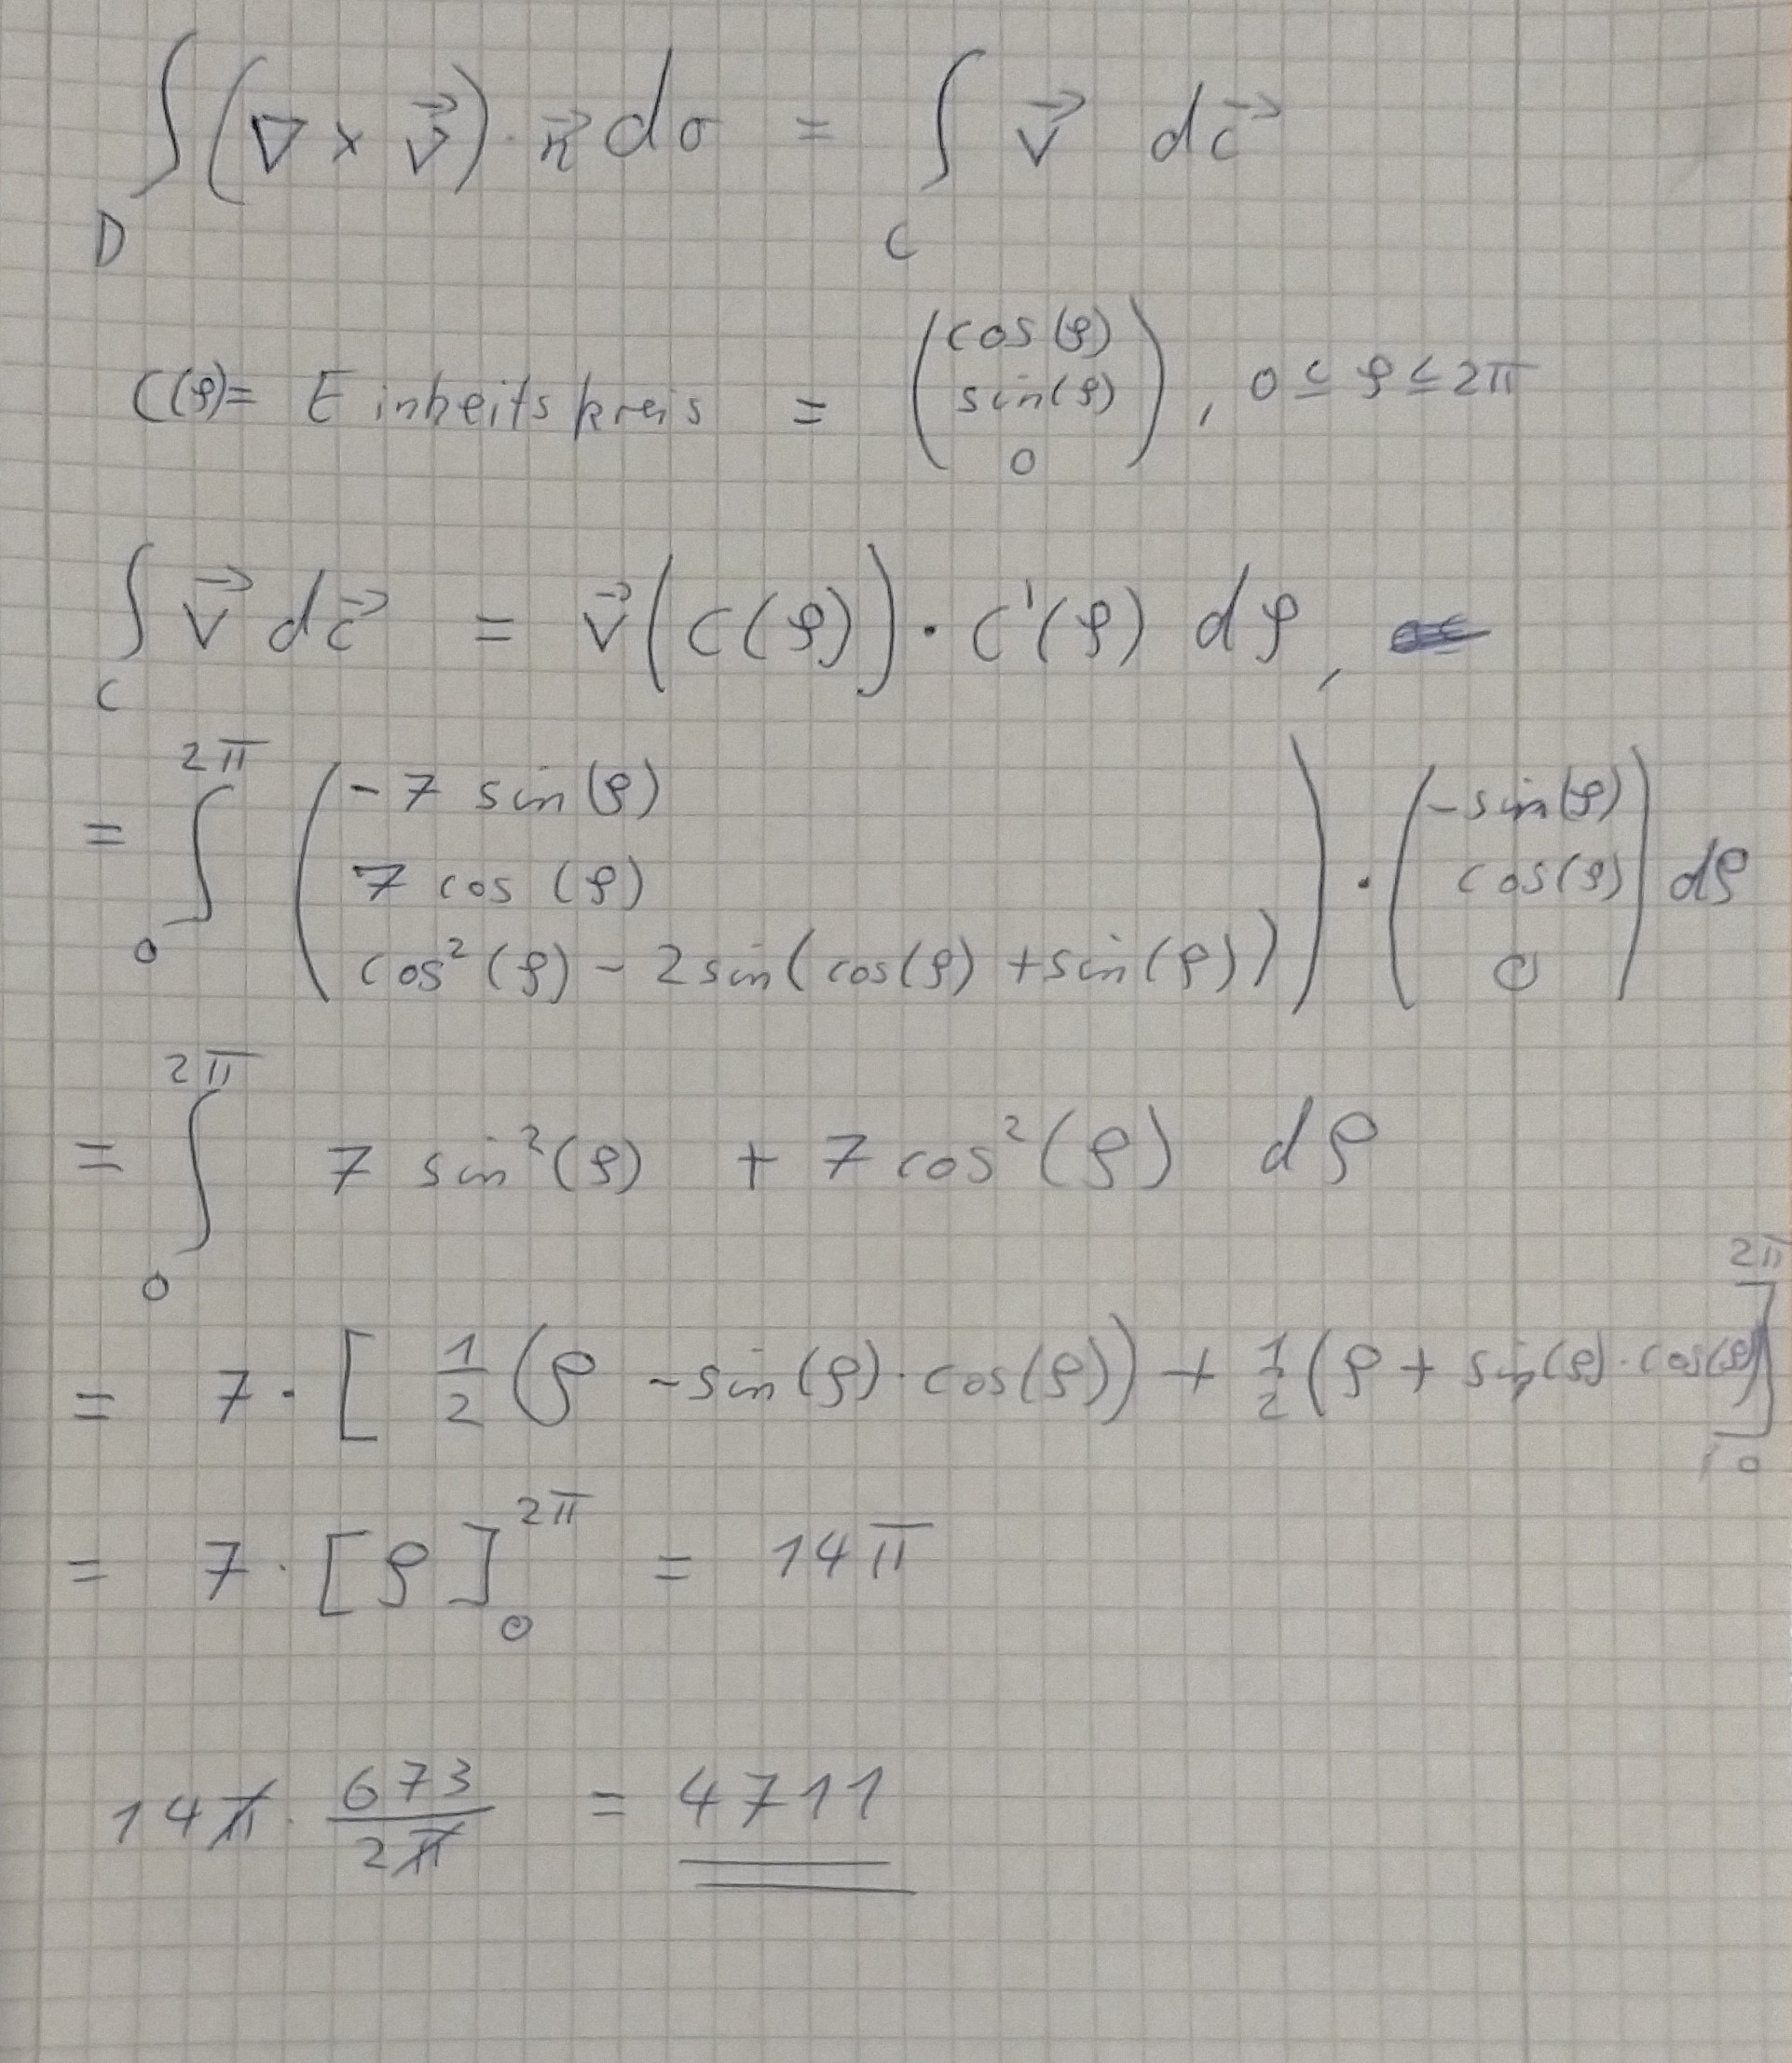 ∫_D (∇ × v⃗) · n⃗ dσ = ∫_C v⃗ dc⃗
C(φ) = Einheitskreis = (cos(φ) sin(φ) 0), 0 ≤ φ ≤ 2π
∫_C v⃗ dc⃗ = v⃗(C(φ)) · C'(φ) dφ,
= ∫_0^{2π} (-7 sin(φ) 7 cos(φ) cos²(φ) - 2 sin(cos(φ) + sin(φ))) · (-sin(φ) cos(φ) 0) dφ
= ∫_0^{2π} 7 sin²(φ) + 7 cos²(φ) dφ
= 7 · [1/2 (φ - sin(φ) · cos(φ)) + 1/2 (φ + sin(φ) · cos(φ))]_0^{2π}
= 7 · [φ]_0^{2π} = 14π
14π · 673/2π = 4711